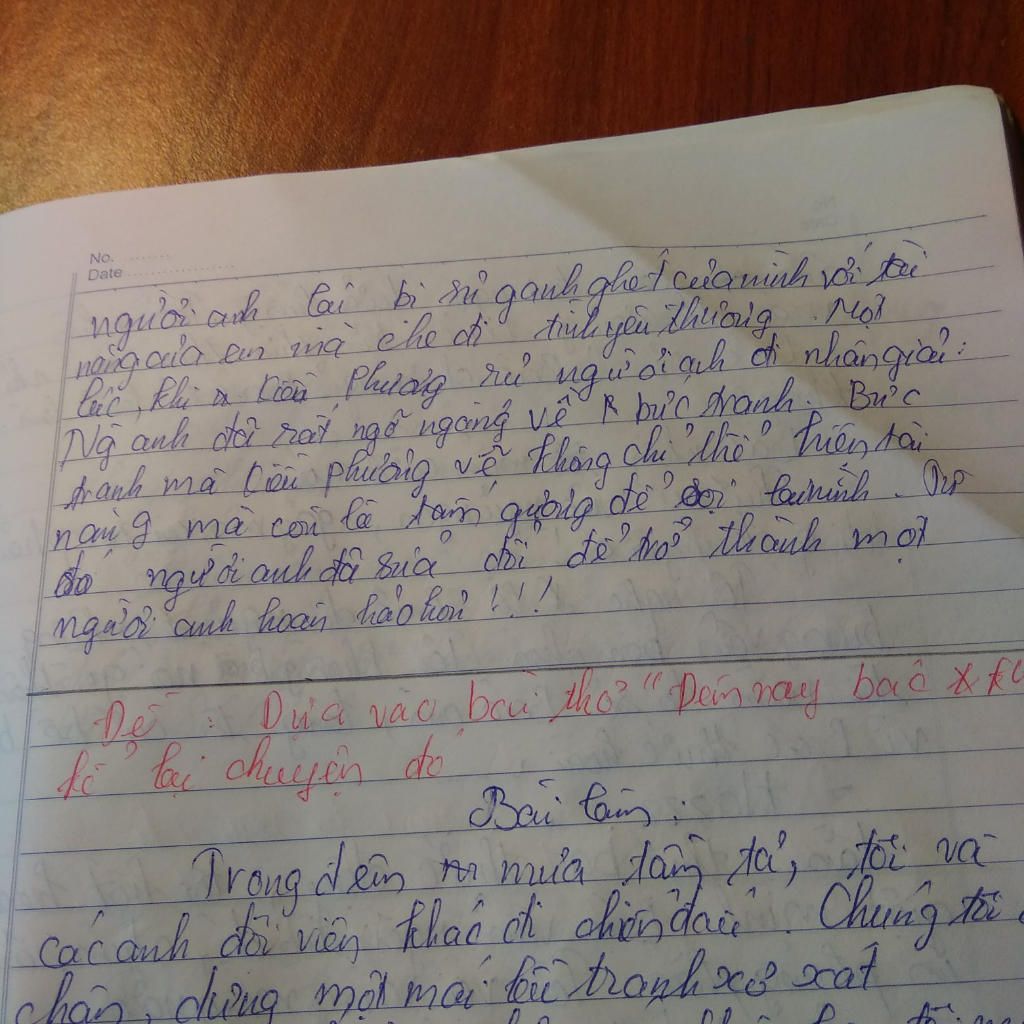 No.
Date
người anh lại bị sự ganh ghét của mình với tài
năng của em mà che đi tình yêu thương. Một
lúc, khi Kiều Phương rủ người anh đi nhân giải:
Ng anh đã rất ngỡ ngàng về bức tranh. Bức
tranh mà Kiều Phương vẽ không chỉ thể hiện tài
năng mà còn là tấm gương để soi lại mình. Từ
đó người anh đã sửa đổi để trở thành một
người anh hoàn hảo hơn!!!
Đề : Dựa vào bài thơ "Đêm nay bác
kể lại chuyện đó
Bài làm:
Trong đêm mưa tầm tả, tôi và
các anh đội viên khác đi chiến đấu. Chúng tôi
chân, dựng một mái lều tranh xơ xát